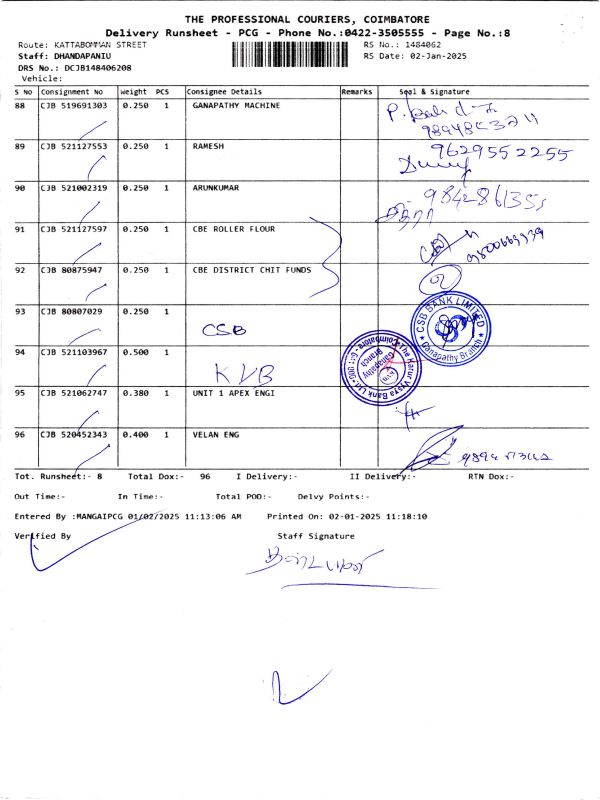 THE PROFESSIONAL COURIERS, COIMBATORE
Delivery Runsheet - PCG - Phone No.:0422-3505555 - Page No.:8
Route: KATTABOMMAN STREET
RS No.: 1484062
Staff: DHANDAPANIU
RS Date: 02-Jan-2025
DRS No.: DCJB148406208
Vehicle:
S No Consignment No Weight PCS Consignee Details Remarks Seal & Signature
88 CJB 519691303 0.250 1 GANAPATHY MACHINE
89 CJB 521127553 0.250 1 RAMESH 9629552255
90 CJB 521002319 0.250 1 ARUNKUMAR
91 CJB 521127597 0.250 1 CBE ROLLER FLOUR
92 CJB 80875947 0.250 1 CBE DISTRICT CHIT FUNDS
93 CJB 80807029 0.250 1 CSB
CSB BANK LIMITED
Ganapathy Branch
94 CJB 521103967 0.500 1 KVB
The Karur Vysya Bank Ltd.
Ganapathy Branch
Coimbatore
95 CJB 521062747 0.380 1 UNIT 1 APEX ENGI
96 CJB 520452343 0.400 1 VELAN ENG
Tot. Runsheet:- 8 Total Dox:- 96 I Delivery:- II Delivery:- RTN Dox:-
Out Time:- In Time:- Total POD:- Delvy Points:-
Entered By :MANGAIPCG 01/02/2025 11:13:06 AM Printed On: 02-01-2025 11:18:10
Verified By Staff Signature